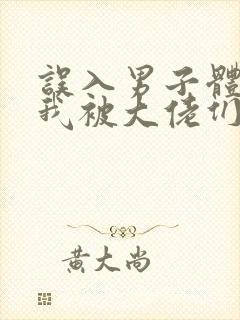 誤入男子體
我被大佬们
黄大尚